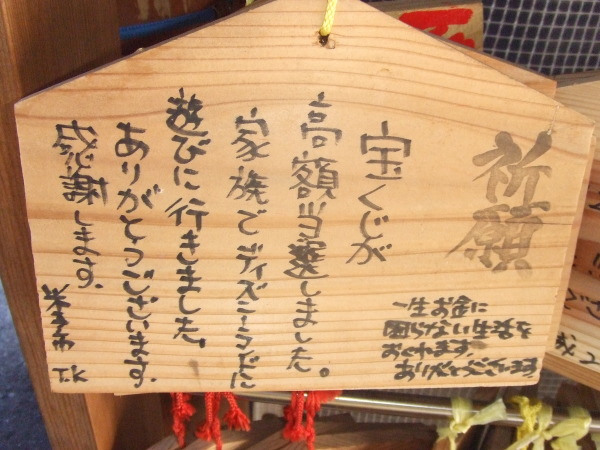 祈願
宝くじが
高額当選しました。
家族でディズニーランドに
遊びに行きました。
ありがとうございます。
感謝します。
米子市 T.K
一生お金に
困らない生活を
おくれます。
ありがとうございます